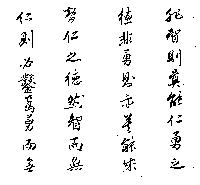 非智則莫能仁勇之
德非勇則亦莫能保
智仁之德然智而無
仁則必鑿焉勇而無